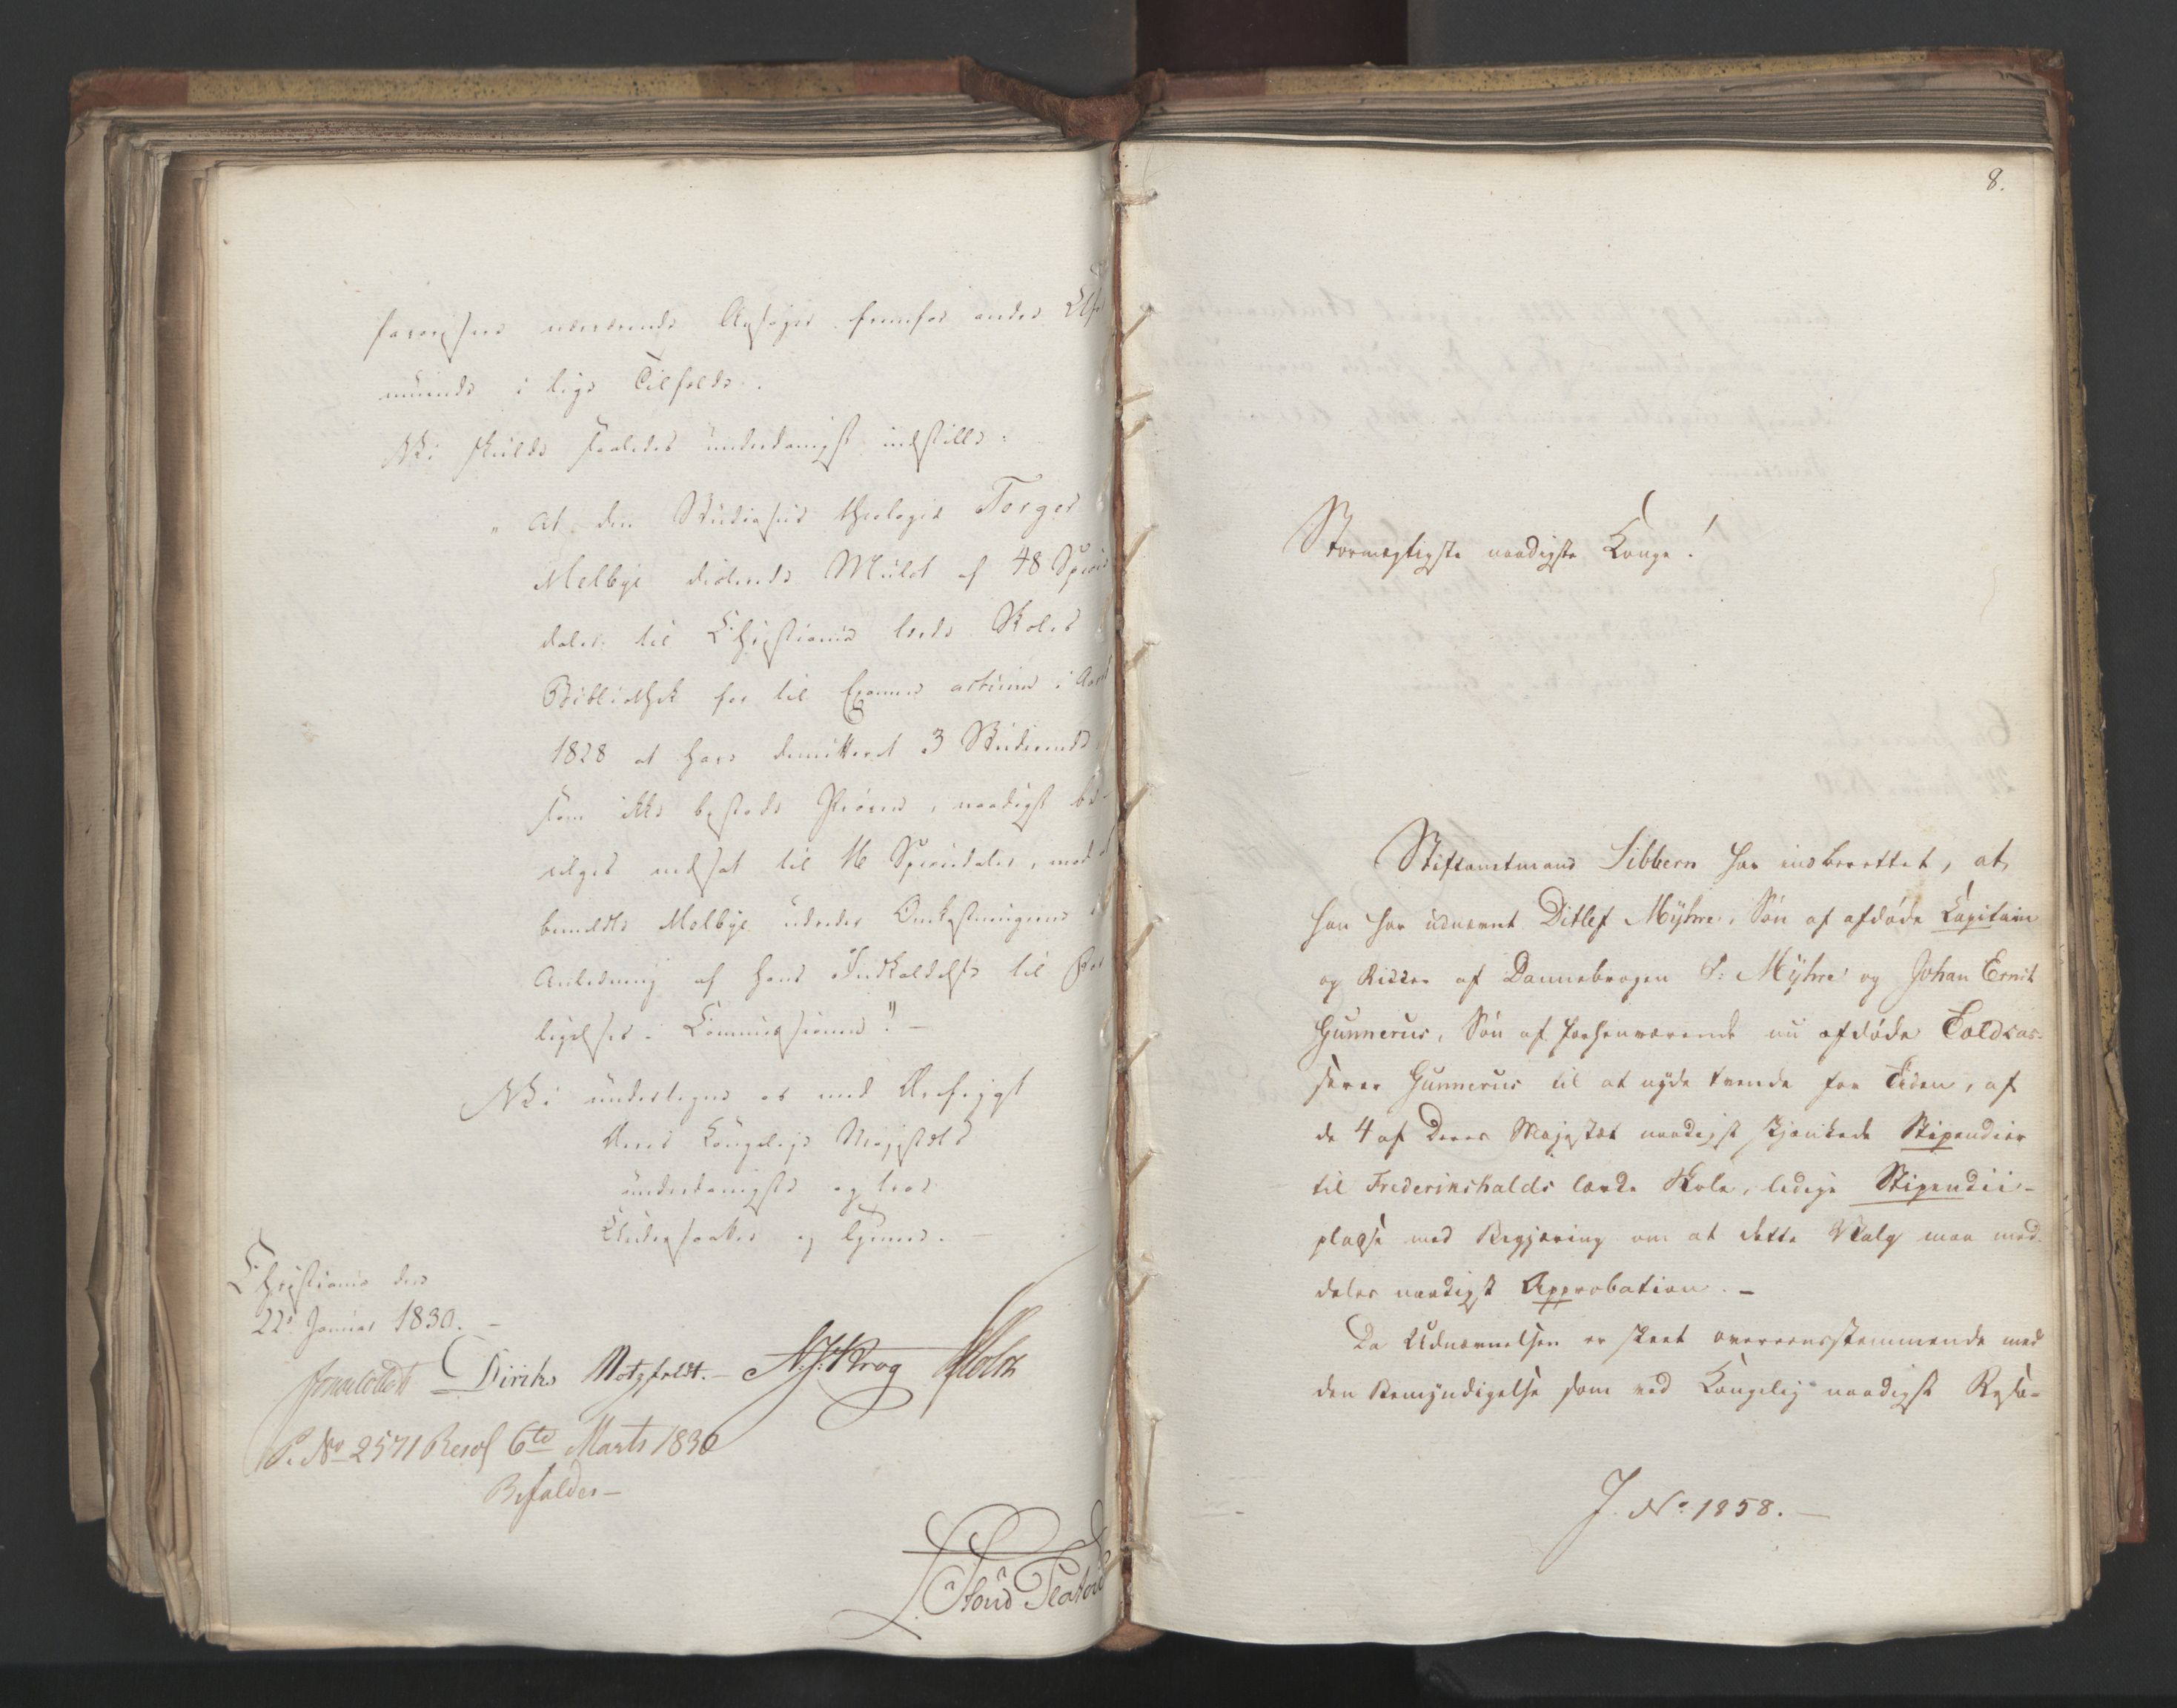 nærværende Ansøger fremfor andre
i lige Tilfælde.
Vi skulde saaledes underdanigst indstille:
"At den Studiosus theologiæ Torger
Melbye dicterede Mulct af 48 Specie
daler til Christiania lærde Skoles
Bibliothek for til Examen artium i Aaret
1828 at have demitteret 3 Studerende,
som ikke bestode Prøven, naadigst be-
nedsat til 16 Speciedaler, mod at
bemeldte Melbye udreder Omkostningerne i
Anledning af hans Indkaldelse til For
ligelses-Commissionen". —
Vi undertegne os med Ærefrygt
Deres Kongelige Majestæts
underdanigste og troe
Undersaatter og tjenere. —
Christiania den
22de Januar 1830. —
Diriks Motzfeldt. — N.J. Krog Holst
P. No 2571 Resol 6te Marts 1830
Bifaldes —
8.
Stormægtigste naadigste Konge!
Stiftamtmand Sibbern har indberettet, at
han har udnævnt Ditlef Mÿhre, Søn af afdøde Capitain
og Ridder af Dannebrogen P: Mÿhre og Johan Ernst
Gunnerus, Søn af forhenværende nu afdøde Toldkas-
serer Gunnerus til at nyde tvende for Tiden, af
de 4 af Deres Majestæt naadigst skjænkede Stipendier
til Frederikshalds lærde Skole, ledige Stipendii-
pladse med Begjæring om at dette Valg maa med-
deles naadigst Approbation. —
Da Udnævnelsen er skeet overeensstemmende med
den Bemyndigelse som ved Kongelig naadigst Reso-
J. No: 1858. —